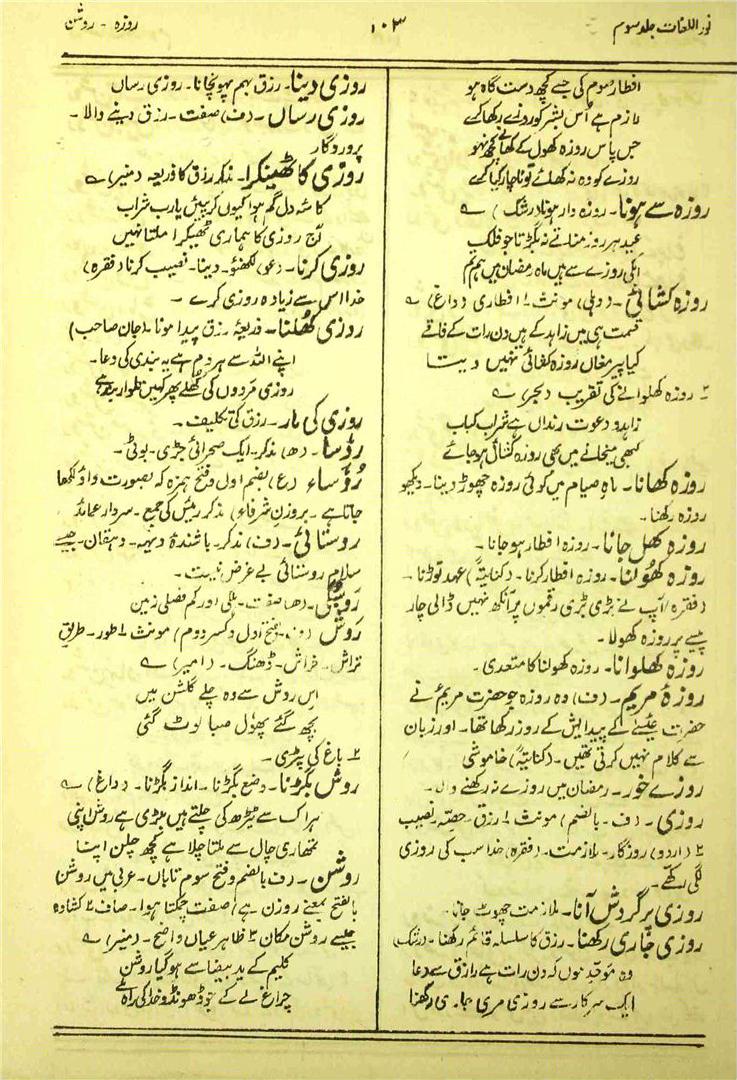 نور اللغات جلد سوم
۱۰۳
روزہ - روشن
افطارِ صوم کی جسے کچھ دست گاہ ہو
لازم ہے اُس بشر کو روزے رکھا کرے
جس پاس روزہ کھول کے کھانے کو کچھ نہو
روزے کو وہ نہ کھائے تو ناچار کیا کرے
روزہ سے ہونا۔ روزہ دار ہونا (رشک) ؎
عید ہر روز مناتے نہ بگڑتا جو فلک
اُنکی روزے سے ہیں ماہِ رمضان میں ہم تم
روزہ کشائی۔ (دہلی) مونث ۱ افطاری (داغ) ؎
قسمت ہی میں زاہد کے ہیں دن رات کے فاقے
کیا پیر مغاں روزہ کشائی نہیں دیتا
۲ روزہ کھلوانے کی تقریب (بحر) ؎
زاہدو دعوت رنداں ہے شراب کباب
کبھی میخانے میں بھی روزہ کشائی ہو جائے
روزہ کھانا۔ ماہِ صیام میں کوئی روزہ چھوڑ دینا۔ دیکھو
روزہ رکھنا۔
روزہ کھل جانا۔ روزہ افطار ہو جانا۔
روزہ کھولنا۔ روزہ افطار کرنا۔ (کنایتہً) عہد توڑنا۔
(فقرہ) آپ نے بڑی بڑی رقموں پر آنکھ نہیں ڈالی چار
پیسے پر روزہ کھولا۔
روزہ کھلوانا۔ روزہ کھولنا کا متعدی۔
روزۂ مریم۔ (ف) وہ روزہ جو حضرت مریمؑ نے
حضرت عیسےٰؑ کے پیدایش کے روز رکھا تھا۔ اور زبان
سے کلام نہیں کرتی تھیں۔ (کنایتہً) خاموشی
روزے خور۔ رمضان میں روزے نہ رکھنے والا۔
روزی۔ (ف۔ بالضم) مونث ۱ رزق۔ حصّہ نصیب
۲ (اردو) روزگار۔ ملازمت۔ (فقرہ) خدا سب کی روزی
لگی رکھے۔
روزی پر گردش آنا۔ ملازمت چھوٹ جانا۔
روزی جاری رکھنا۔ رزق کا سلسلہ قائم رکھنا۔ (رشک)
وہ موحّد ہوں کہ دن رات ہے رازق سے دعا
ایک سرکار سے روزی مری جاری رکھنا
روزی دینا۔ رزق بہم پہونچانا۔ روزی رساں
روزی رساں۔ (ف) صفت۔ رزق دینے والا۔
پروردگار
روزی کا ٹھیکرا۔ مذکر رزق کا ذریعہ (منیر) ؎
کاسۂ دل گم ہوا کیوں کر پئیں یارب شراب
آج روزی کا ہماری ٹھیکرا ملتا نہیں
روزی کرنا۔ (عو) لکھنؤ۔ دینا۔ نصیب کرنا (فقرہ)
خدا اس سے زیادہ روزی کرے۔
روزی کھلنا۔ ذریعۂ رزق پیدا ہونا۔ (جان صاحب)
اپنے اللہ سے ہر دم ہے یہ بندی کی دعا۔
روزی مَردوں کی کھلے پھر کہیں تلوار بندھے
روزی کی مار۔ رزق کی تکلیف۔
روُسا۔ (ھ) مذکر۔ ایک صحرائی جڑی۔ بوٹی۔
رُؤَساء (ع) بضم اول وفتح ہمزہ کہ بصورت واؤ لکھا
جاتا ہے۔ بروزن شرفاء) مذکر رئیس کی جمع۔ سردار عمائد
روستائی۔ (ف) مذکر۔ باشندۂ دیہہ۔ دہقان۔ جیسے
سلام روستائی بے غرض نیست۔
(ھ) صفت۔ ہلکی اور کم فصلی زمین
رَوِش (ف۔ بفتح اول وکسر دوم) مونث ۱ طور۔ طریق
تراش۔ خراش۔ ڈھنگ۔ (امیر) ؎
اِس روش سے وہ چلے گلشن میں
بچھ گئے پھول صبا لوٹ گئی
۲ باغ کی پٹڑی۔
روش بگڑنا۔ وضع بگڑنا۔ انداز بگڑنا۔ (داغ) ؎
ہر اک سے ٹیڑھ کی چلتے ہیں بگڑی ہے روش اپنی
تمھاری چال سے ملتا چلا ہے کچھ چلن اپنا
روشن۔ (ف بالضم وفتح سوم تاباں۔ عربی میں روشن)
بالفتح بمعنے روزن ہے) صفت چمکتا ہوا۔ صاف ۲ کشادہ
جیسے روشن مکان ۳ ظاہر عیاں واضح۔ (منیر) ؎
کلیم کے ید بیضا سے ہو گیا روشن
چراغ لے کے جو ڈھونڈو خدا کی راہ ملے